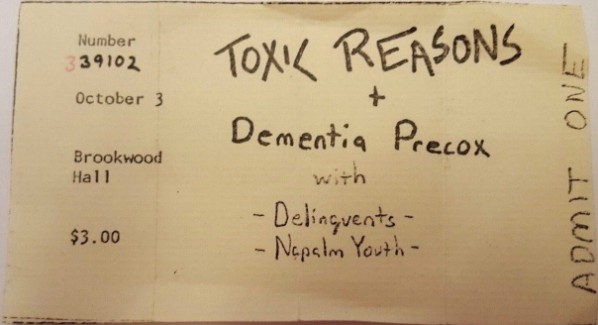 Number
339102
October 3
Brookwood
Hall
$3.00
TOXIC REASONS
+
Dementia Precox
with
- Delinquents -
- Napalm Youth -
ADMIT ONE